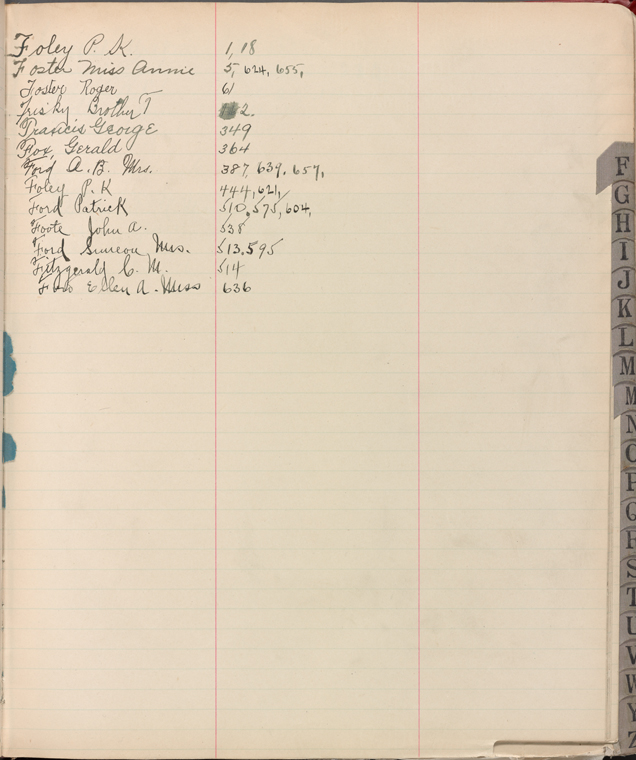 Foley P. K. 1, 18
Foster Miss Annie 5, 624, 655,
Foster Roger 61
Brother 2.
Francis George 349
Fox, Gerald 364
Ford A. B. Mrs. 387, 639, 657,
Foley P. K 444, 621,
Ford Patrick 510, 575, 604,
Foote John A. 538
Ford Simeon Mrs. 513, 595
Fitzgerald C. M. 514
Ellen A. Miss 636
F
G
H
I
J
K
L
M
M
N
O
P
Q
R
S
T
U
V
W
Y
Z